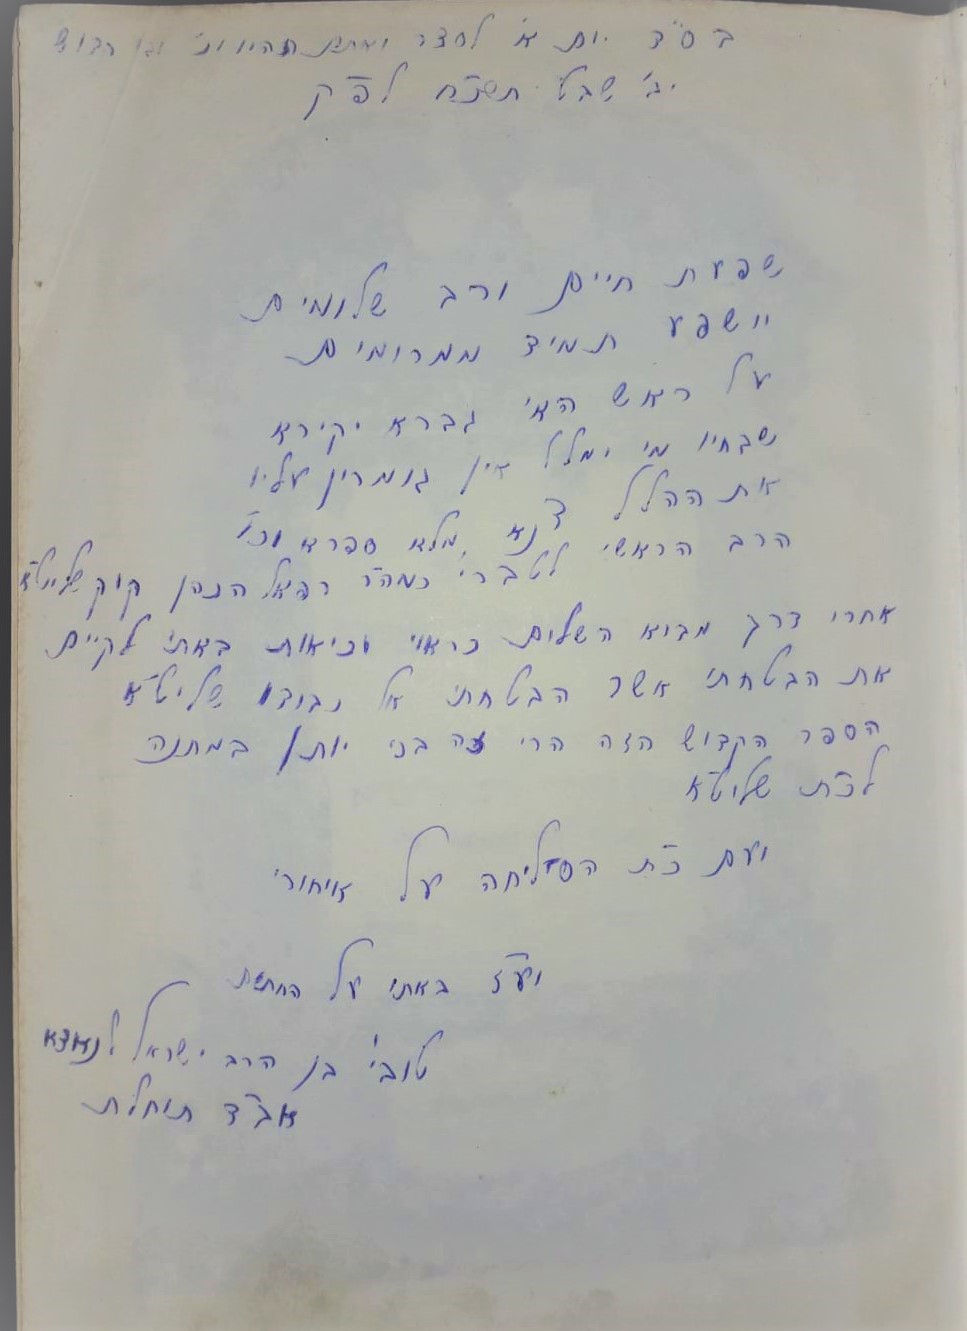 בס"ד יום א' לסדר ואתם תהיו לי וגוי קדוש
יג' שבט תשכ"ח לפ"ק
שפעת חיים ורב שלומים
יושפע תמיד ממרומים
על ראש האי גברא יקירא
שבחיו מי ימלל אין גומרין עליו
את ההלל צנא מלא ספרא וכו'
הרב הראשי לטברי' כמה"ר רפאל הכהן קוק שליט"א
אחרי דרך מבוא השלום כראוי וכיאות באתי לקיים
את הבטחתי אשר הבטחתי אל כבודו שליט"א
הספר הקדוש הזה הרי זה בכי יותן במתנה
לכ"ת שליט"א
ועם כ"ת הסליחה על איחורי
וע"ז באתי על החתום
טובי' בן הרב ישראל לנדא
אב"ד תוחלת